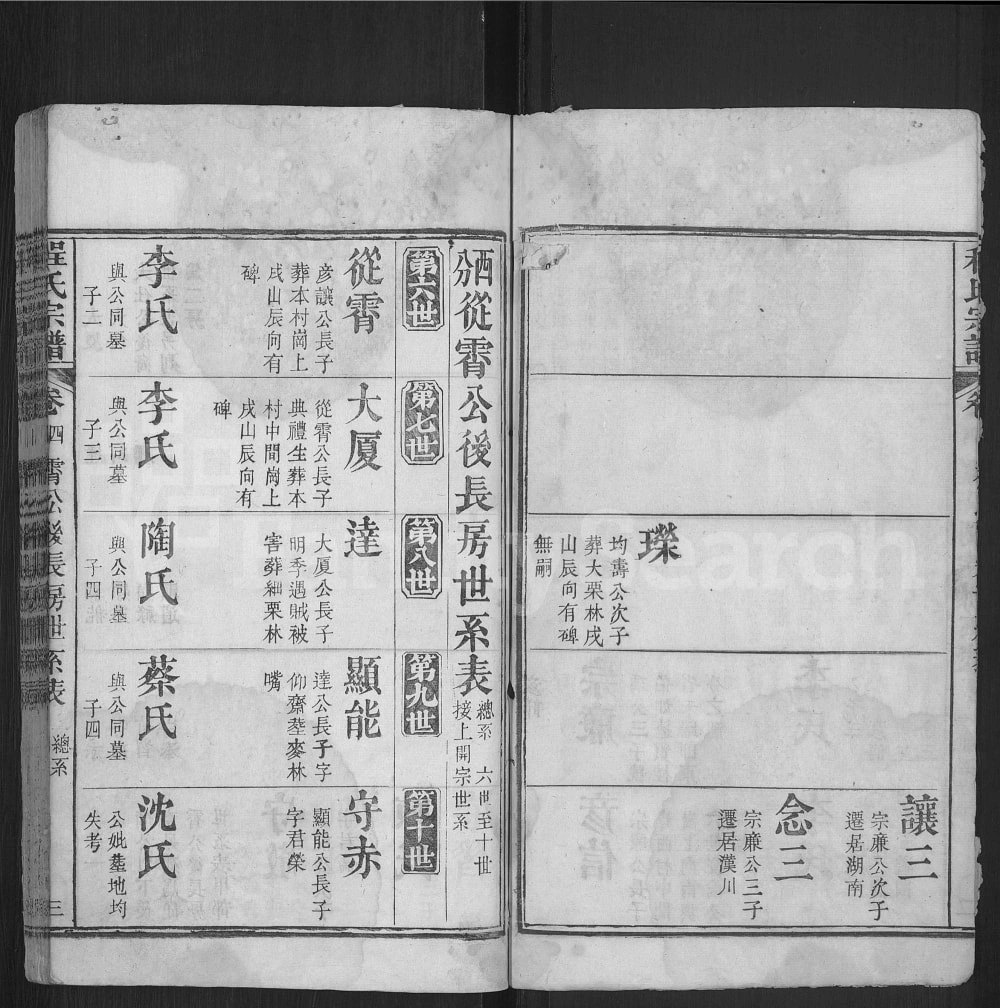 瓅
均壽公次子
葬大栗林戌
山辰向有碑
無嗣
讓三
宗廉公次子
遷居湖南
念三
宗廉公三子
遷居漢川
分西從霄公後長房世系表
總系 六世至十世
接上開宗世系
第六世
第七世
第八世
第九世
第十世
從霄
彦讓公長子
葬本村崗上
戌山辰向有
碑
李氏
與公同墓
子二
大厦
從霄公長子
典禮生葬本
村中間崗上
戌山辰向有
碑
李氏
與公同墓
子三
達
大厦公長子
明季遇賊被
害葬細栗林
陶氏
與公同墓
子四
顯能
達公長子字
仰齋塟麥林
嘴
蔡氏
與公同墓
子四
守赤
顯能公長子
字君榮
沈氏
公妣塟地均
失考
程氏宗譜
卷四
霄公後長房世系表
總系
三